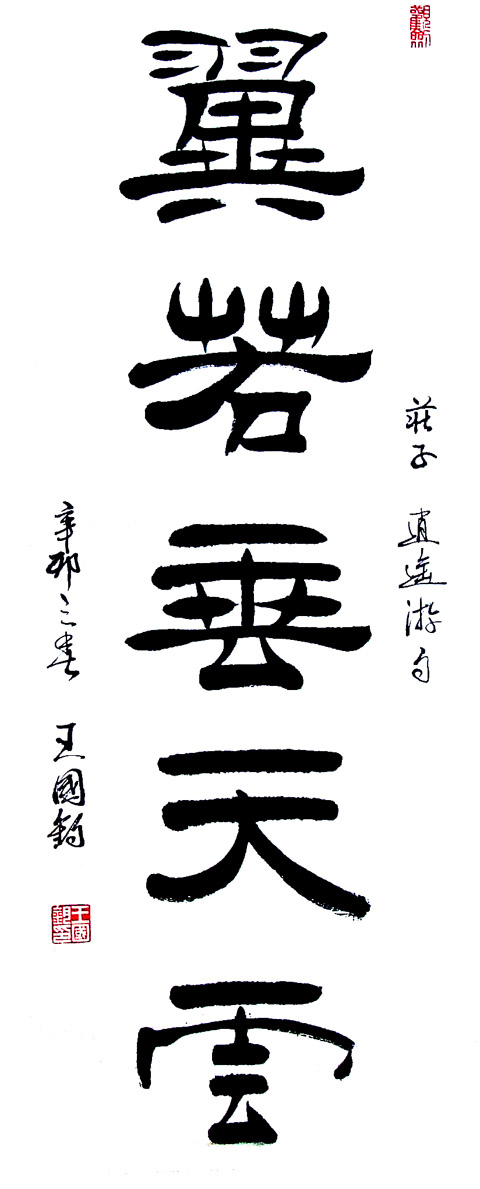 莊子 逍遙游句
翼若垂天雲
辛卯之春 王國鈞